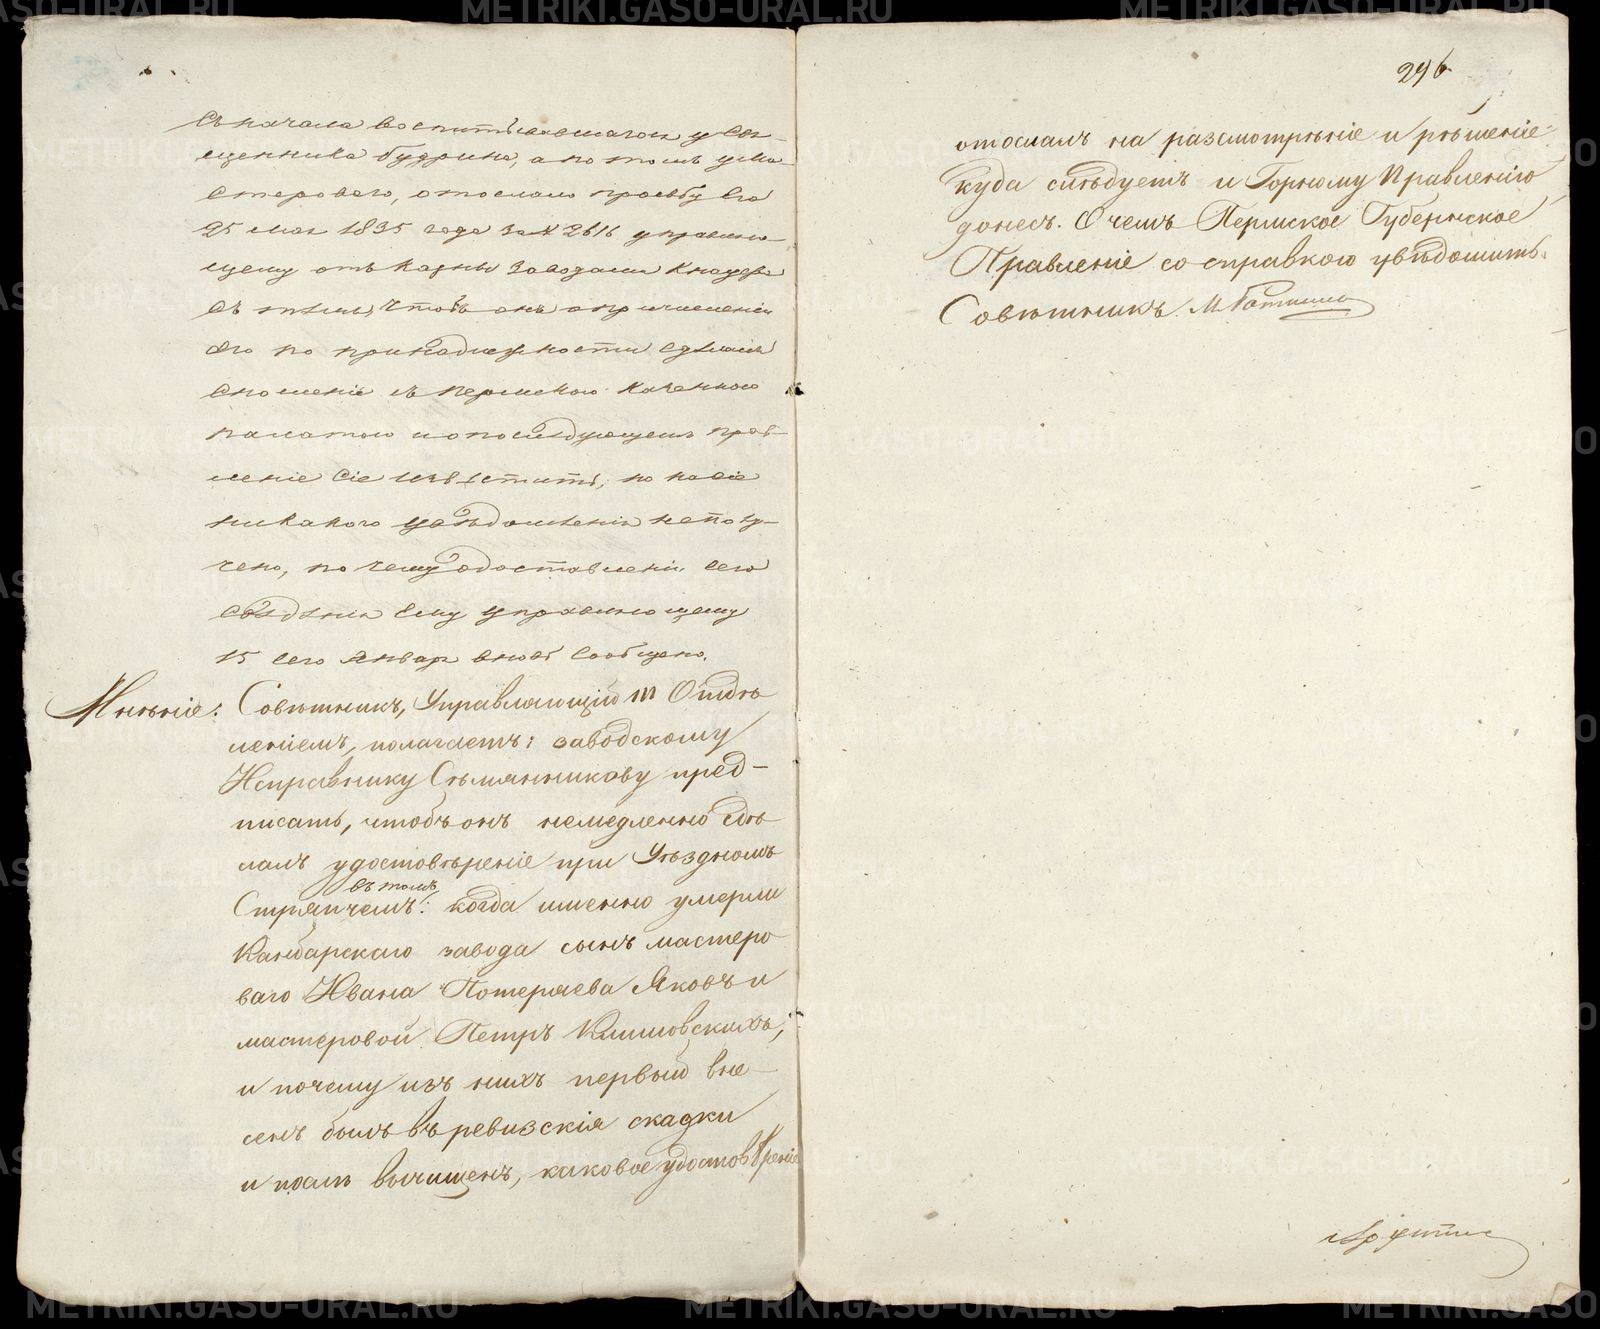 сначала воспитывавшагося у свя-
щенника Будрина, а по томъ у ма-
стероваго, отослало прозьбу его
25 мая 1835 года за № 2616 управляю-
щему отъ казны заводами Кнауфа
съ темъ, чтобъ онъ о причислении
его по принадлежности сделалъ
сношение съ Пермскою казенною
палатою и о последующемъ прав-
ление сие известить, но по сие
никакого уведомления неполу-
чено, по чему о доставлении сего
сведения ему управляющему
15 сего Января вновь сообщено.
Мнѣніе: Совѣтникъ, Управляющій III Отдѣ
леніемъ, полагаетъ: заводскому
Исправнику Стѣмянникову пред-
писать, чтобъ онъ немедленно сдѣ
лалъ удостовѣреніе при Уѣздномъ
въ томъ
Стряпчемъ: когда именно умерли
Камбарскаго завода сынъ мастеро
ваго Ивана Потеряева Яковъ и
мастеровой Петръ Климовскихъ,
и почему изъ нихъ первый вне-
сенъ былъ въ ревизскія сказки
и послѣ вычищенъ, каковое удостовѣреніе
296
отослалъ на разсмотрѣніе и рѣшеніе
куда слѣдуетъ и Горному Правленію
донесъ. О чемъ Пермское Губернское
Правленіе со справкою увѣдомить.
Совѣтникъ М